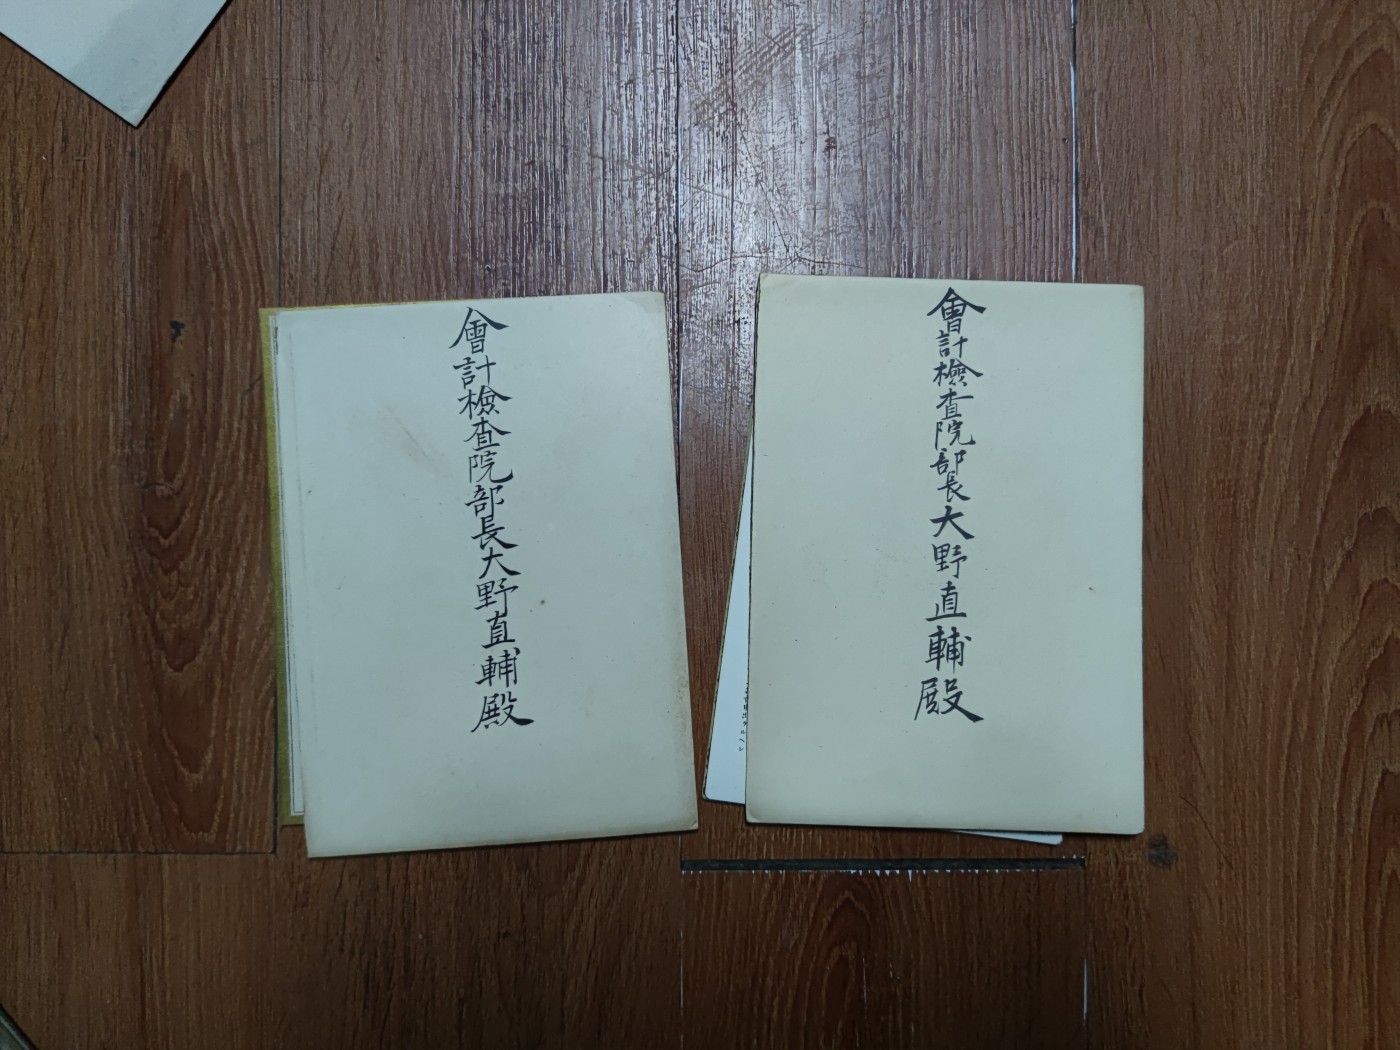 會計檢查院部長大野直輔殿
會計檢查院部長大野直輔殿